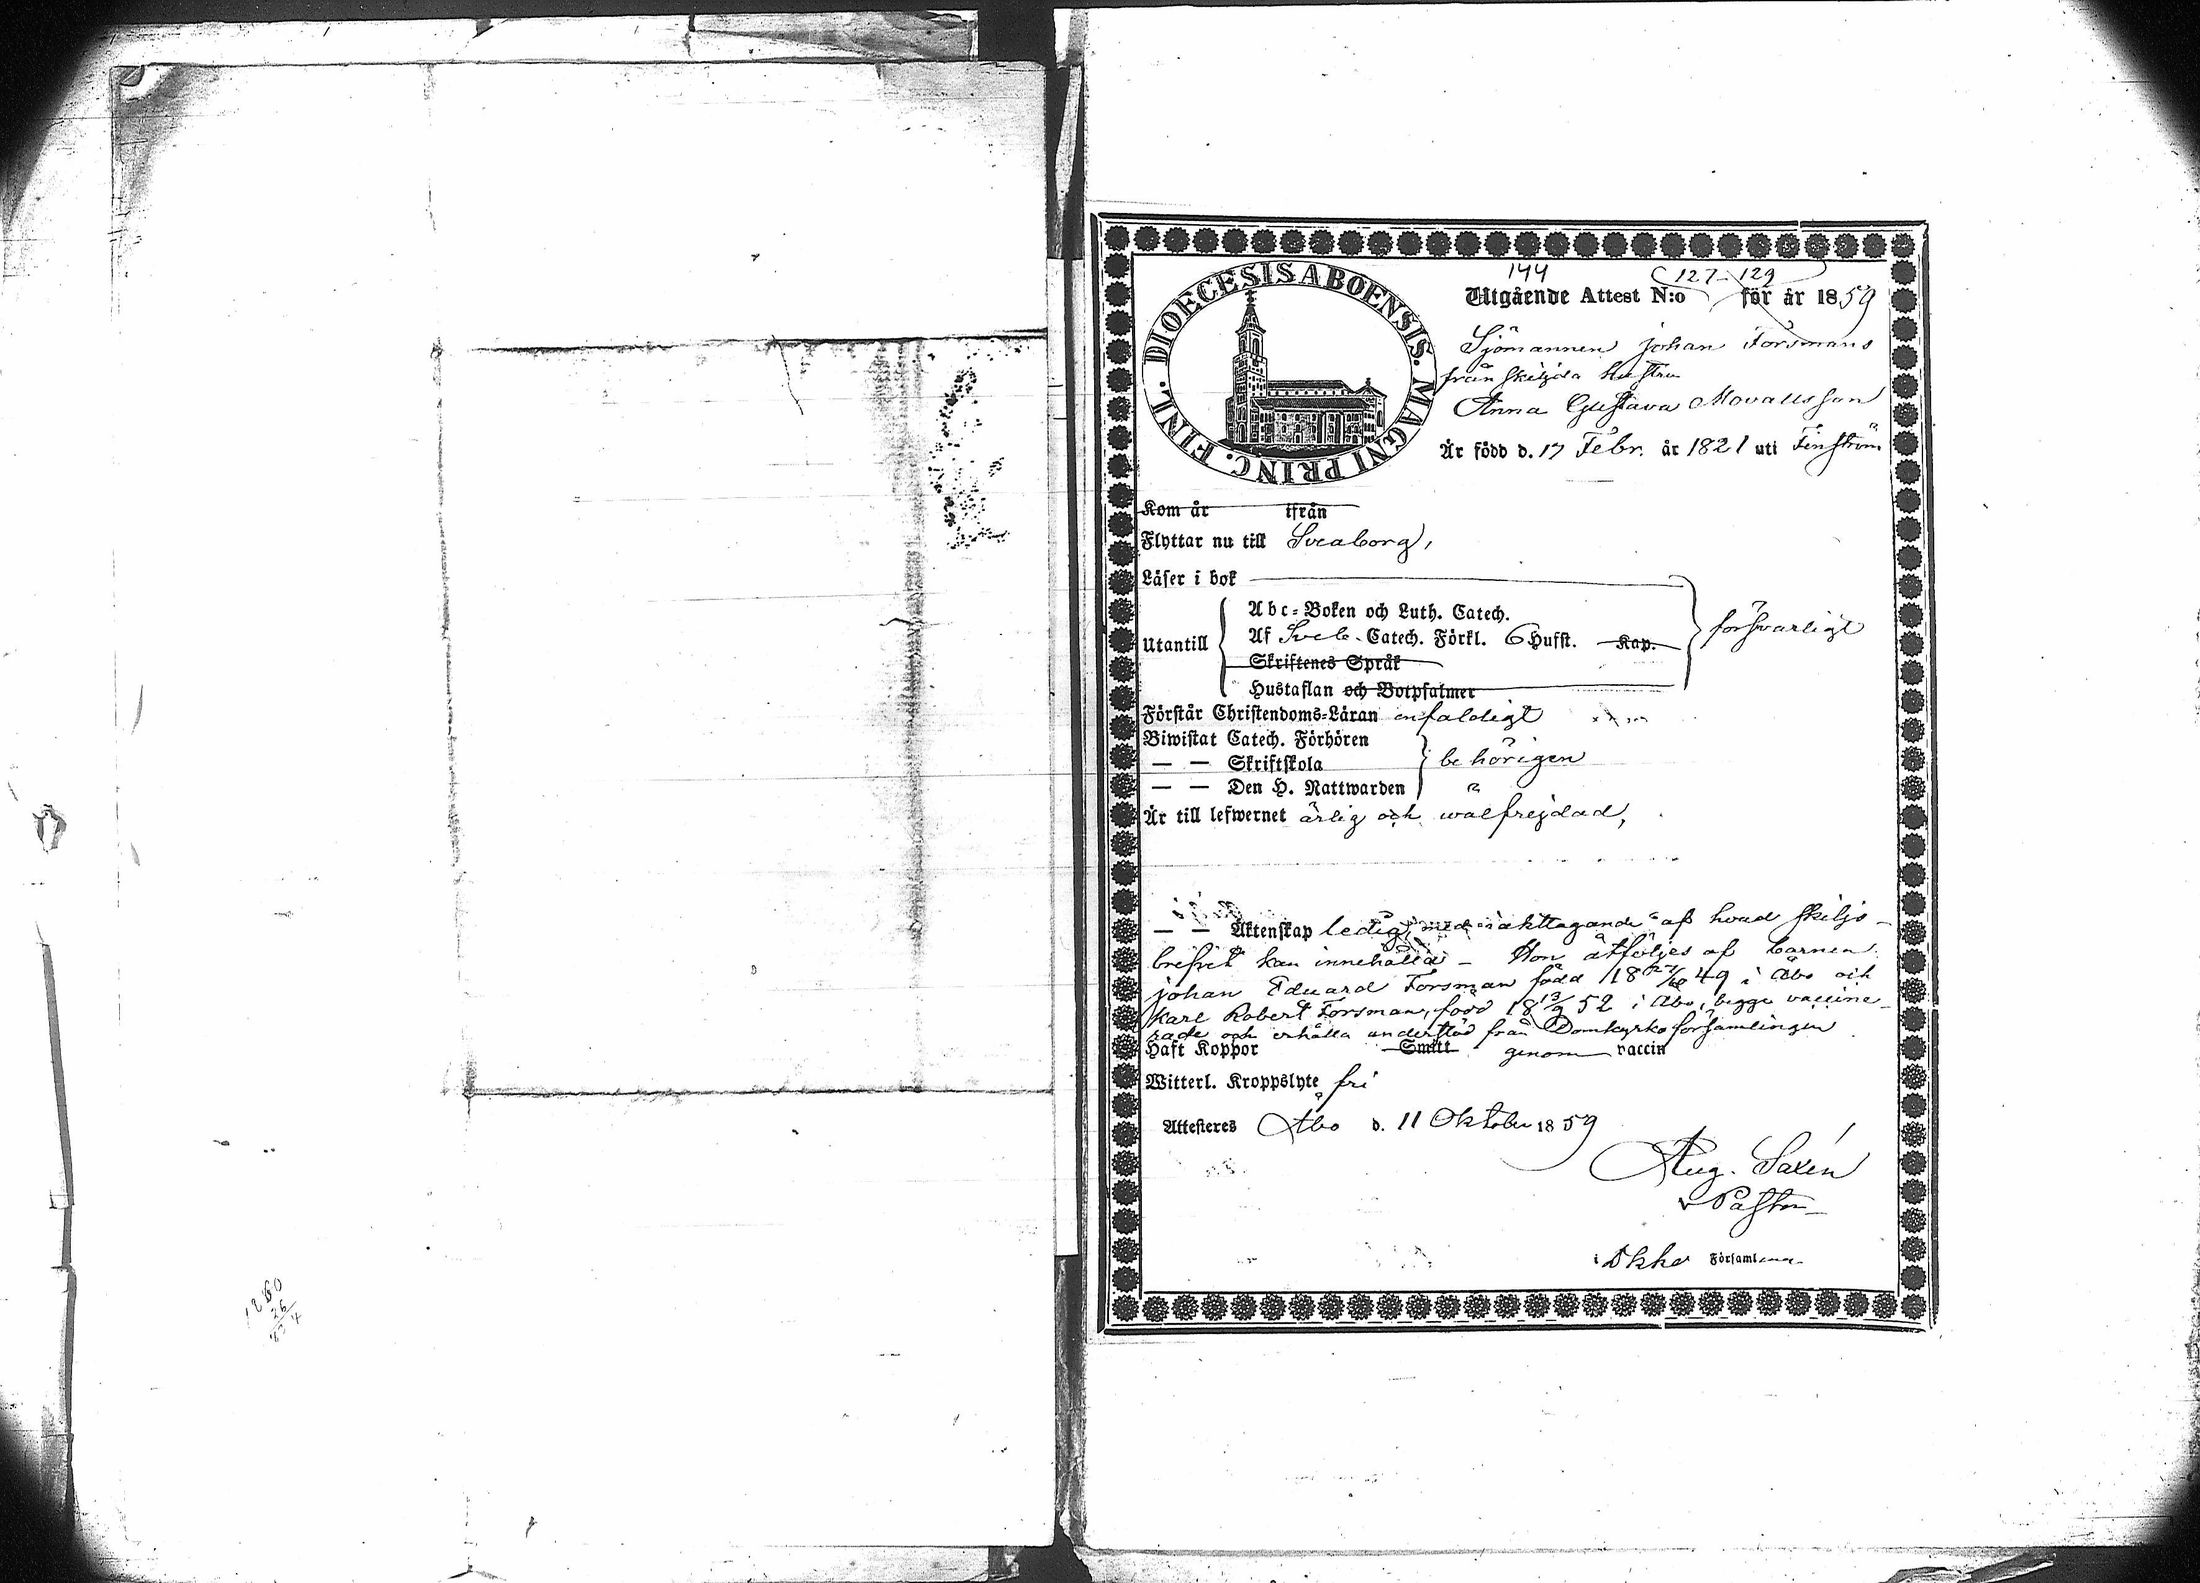 DIOECESIS ABOENSIS. MAGNI PRINC. FINL.
144 127-129
Utgående Attest N:o för år 1859
Sjömannen Johan Forsmans
frånskiljda Hustru
Anna Gustava
Är född d. 17 Febr. år 1821 uti Finström
Kom år ifrån
Flyttar nu till Sveaborg,
Läser i bok
Abc-Boken och Luth. Catech.
Utantill Af Sveb. Catech. Förkl. 6 Hufst. Kap. försvarligt
Skriftenes Språk
Hustaflan och Botpsalmer
Förstår Christendoms-Läran enfaldigt
Biwistat Catech. Förhören
— — Skriftskola behörigen
— — Den H. Nattwarden
Är till lefwernet ärlig och välfrejdad,
— — Äktenskap ledig, med iakttagande af hvad skiljo-
brefvet kan innehålla - Hon åtföljes af barnen
Johan Eduard Forsman född 18 49 i Åbo och
Karl Robert Forsman, född 18 13/9 52 i Åbo, begge vaccine-
rade och erhålla understöd från Domkyrko församlingen
Haft Koppor Smitt genom vaccin
Witterl. Kroppslyte fri
Attesteres Åbo d. 11 Oktober 1859
Aug. Saxén
v Pastor
i Dkko Församl
1860
26